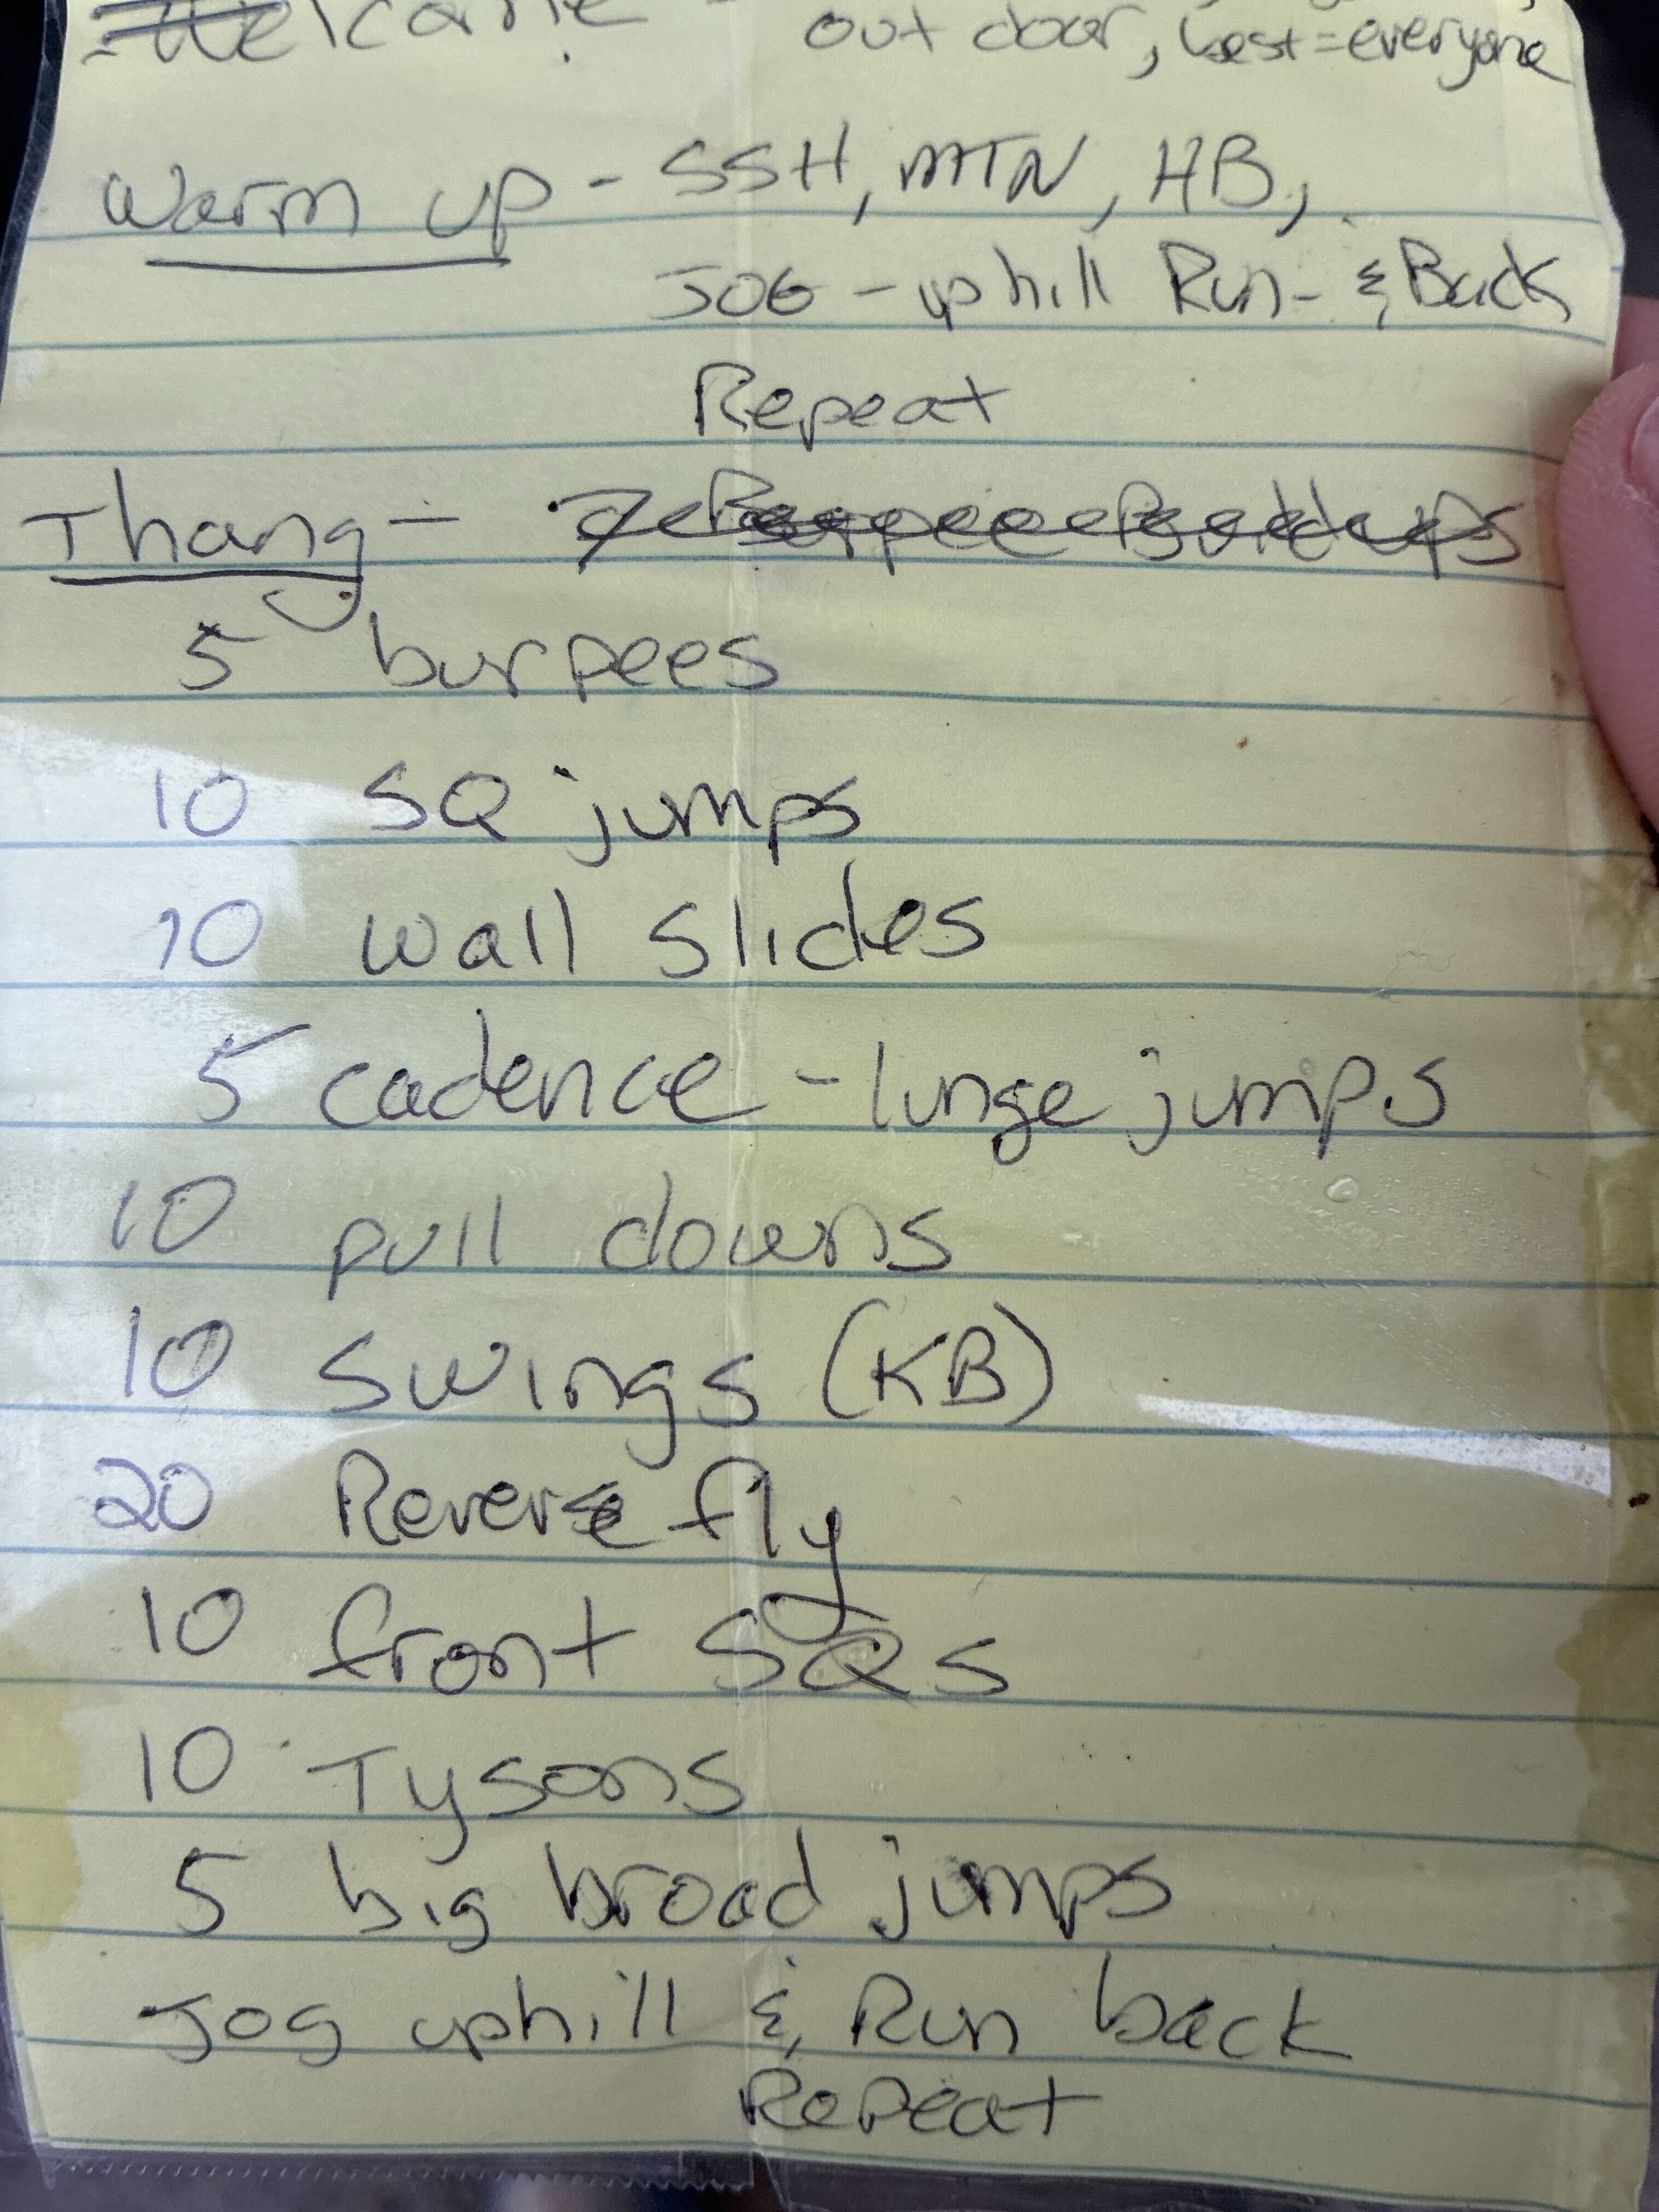 Welcome -
out door, best = everyone
Warm up - SSH, MTN, HB,
JOG - uphill Run - & Back
Repeat
Thang -
5 burpees
10 SQ jumps
10 wall slides
5 cadence - lunge jumps
10 pull downs
10 swings (KB)
20 Reverse fly
10 front SQs
10 Tysons
5 big broad jumps
Jog uphill & Run back
Repeat